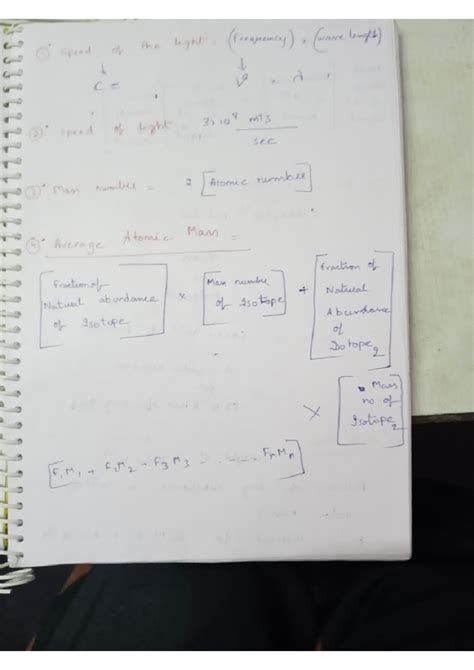 ① Speed of the light = (frequency) × (wave length)
C = ν . λ
② Speed of light 3×10⁸ mts
sec
③ Mass number = 2 [Atomic number]
④ Average Atomic Mass =
[Fraction of Natural abundance of Isotope] × [Mass number of Isotope] + [Fraction of Natural Abundance of Isotope₂]
× [Mass no of Isotope₂]
[F₁M₁ + F₂M₂ + F₃M₃ ...... FₙMₙ]